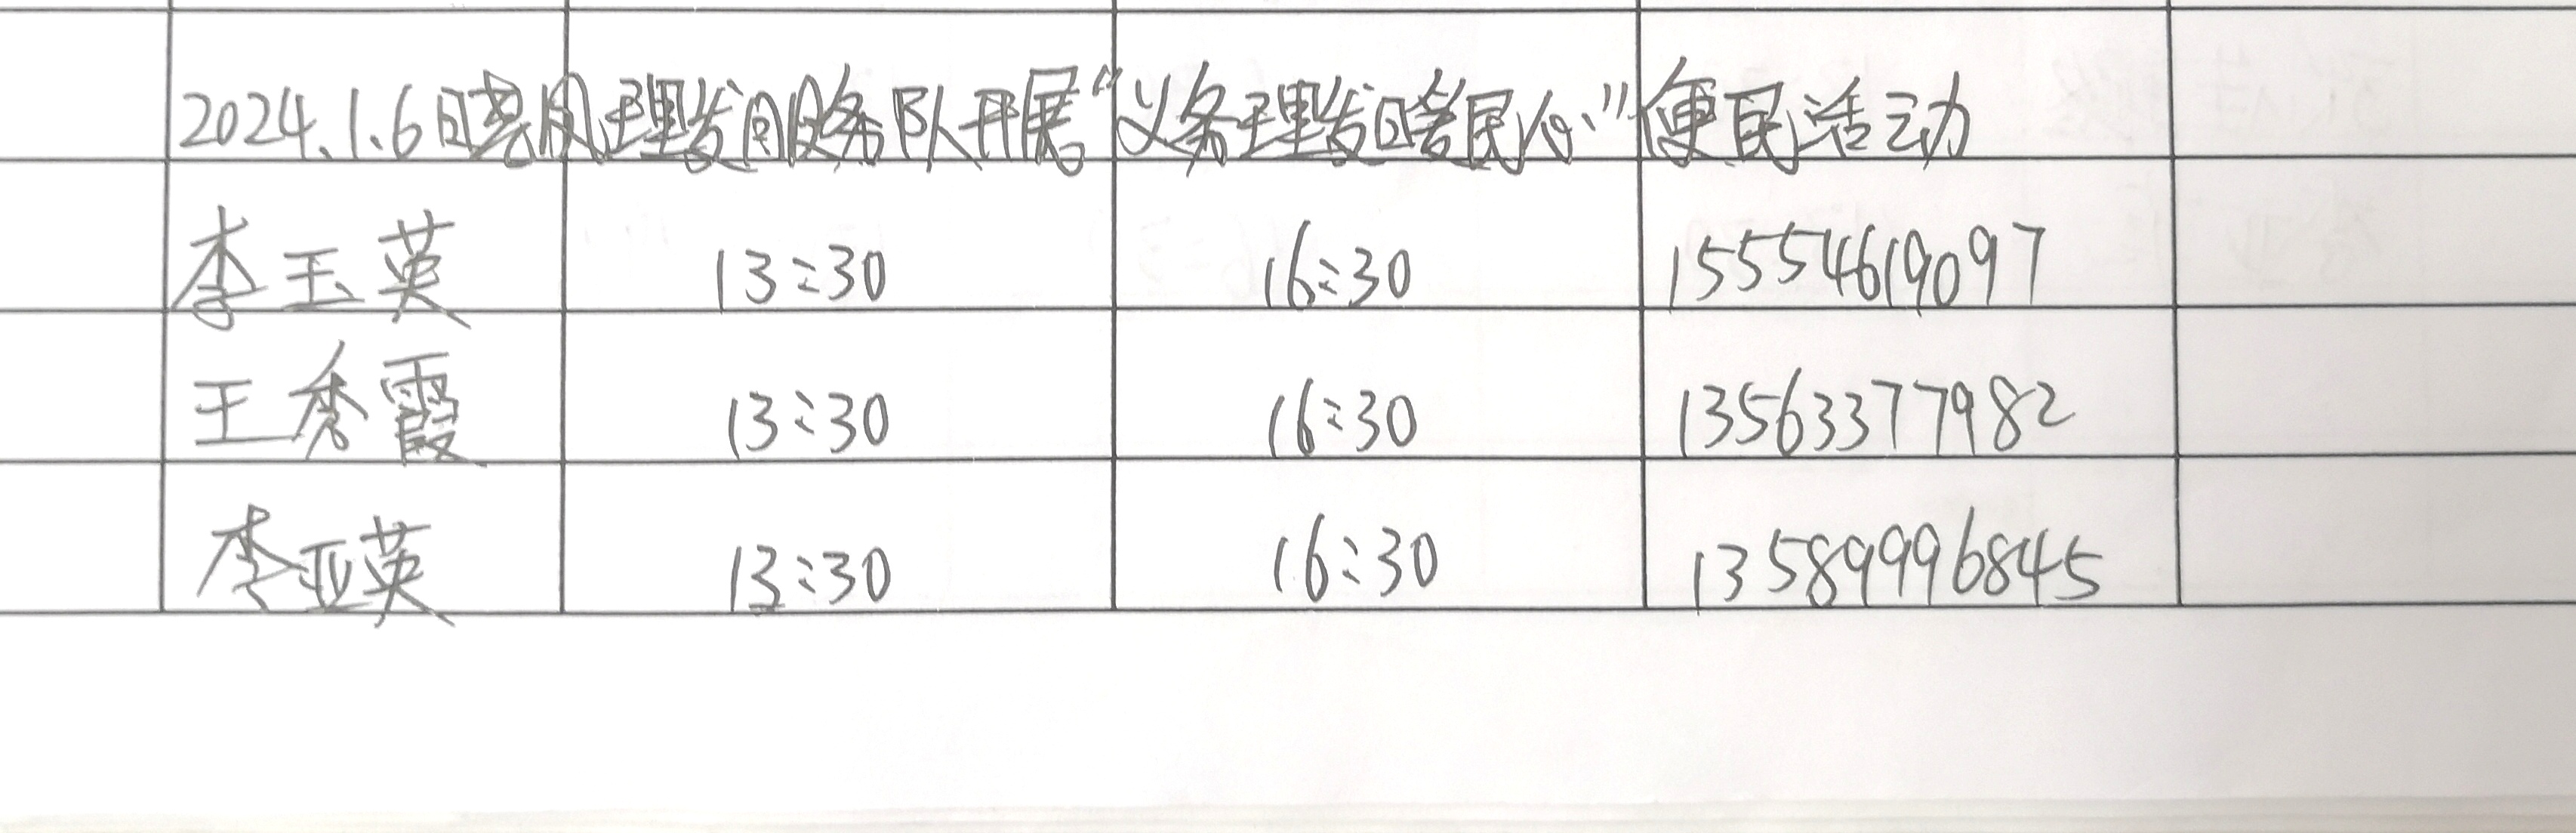 2024.1.6日晓风理发间服务队开展“义务理发暖民心”便民活动
李玉英 13:30 16:30 15554619097
王秀霞 13:30 16:30 13563377982
李亚英 13:30 16:30 13589996845